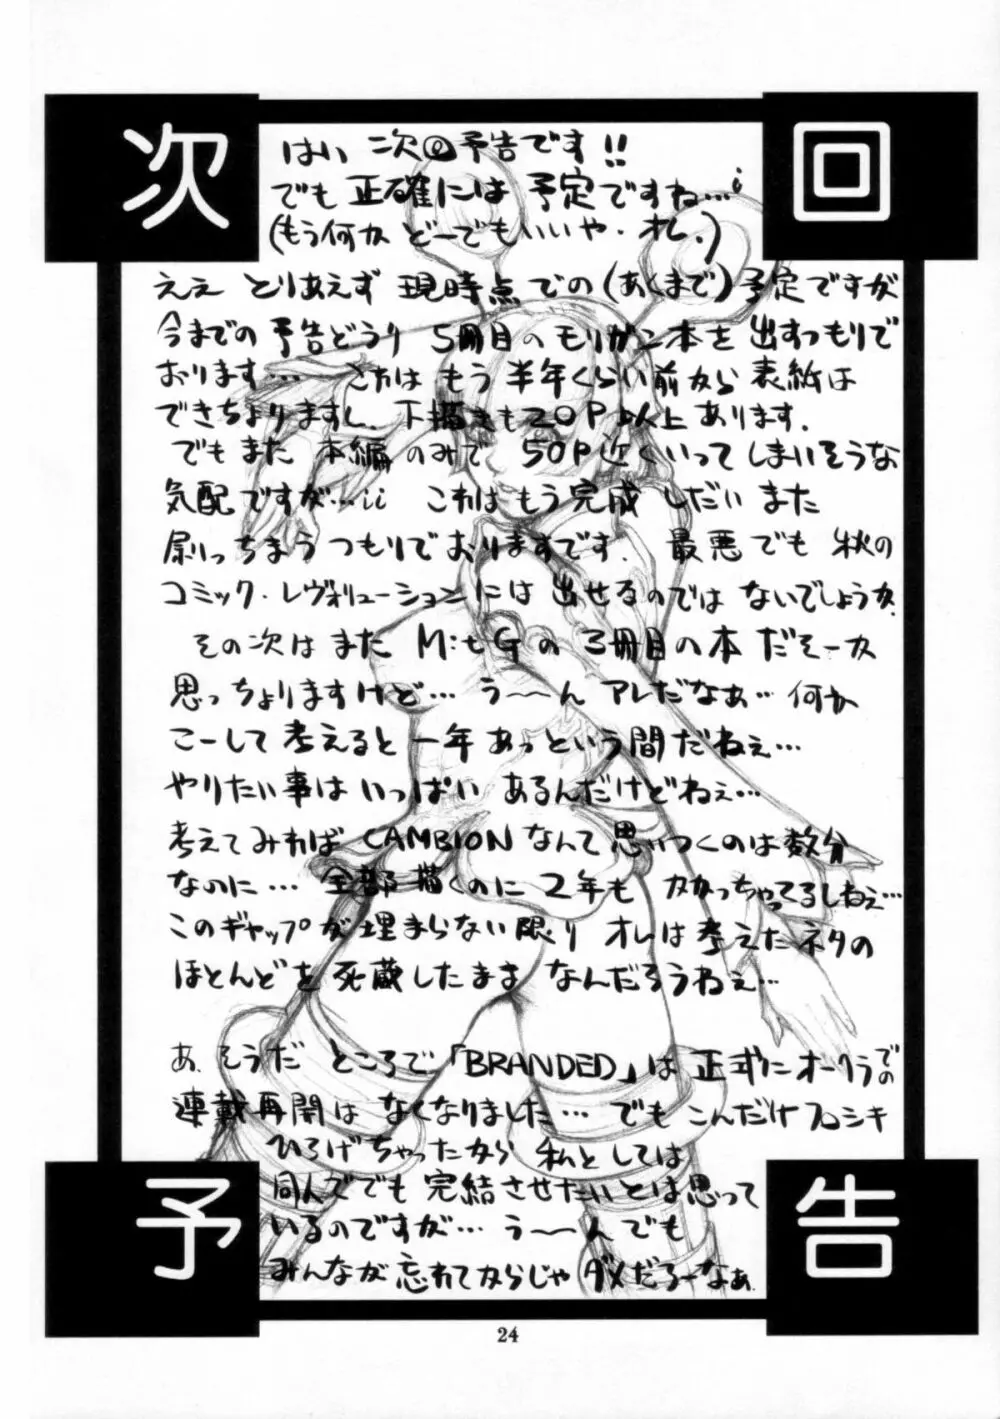 次回
はい 次回予告です!!
でも 正確には 予定ですね…;
(もう何か どーでもいいや・オレ.)
ええ とりあえず 現時点での (あくまで) 予定ですが
今までの 予告どうり 5冊目のモリガン本を 出すつもりで
おります… これは もう 半年くらい前から 表紙は
できちょりますし、下描きも20P以上あります.
でもまた 本編のみで 50P近くいってしまいそうな
気配ですが…;; これはもう完成 しだい また
刷っちまう つもりでおりますです. 最悪でも 秋の
コミック・レヴォリューションには 出せるのでは ないでしょうか.
その次は また M:tGの 3冊目の本 だそーか
思っちょりますけど… う〜〜ん アレだなぁ… 何か
こーして 考えると 一年 あっという間だねぇ…
やりたい事は いっぱい あるんだけどねぇ…
考えてみれば CAMBIONなんて 思いつくのは 数分
なのに… 全部 描くのに 2年も かかっちゃってるしねぇ…
このギャップが 埋まらない限り オレは 考えたネタの
ほとんどを 死蔵したまま なんだろうねぇ…
あ、そうだ ところで 「BRANDED」は 正式に オークラでの
連載再開は なくなりました… でも こんだけ フロシキ
ひろげちゃったから 私としては
同人ででも 完結させたいとは思って
いるのですが… う〜〜ん でも
みんなが 忘れてからじゃ ダメだろーなぁ.
予告
24